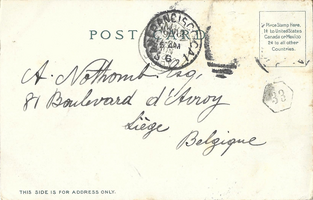 POST CARD
SAN FRANCISCO, CAL.
Place Stamp Here.
1¢ to United States
Canada or Mexico
2¢ to all other
Countries.
A. Nothomb Esq,
81 Boulevard d'Avroy
Liège
Belgique
THIS SIDE IS FOR ADDRESS ONLY.